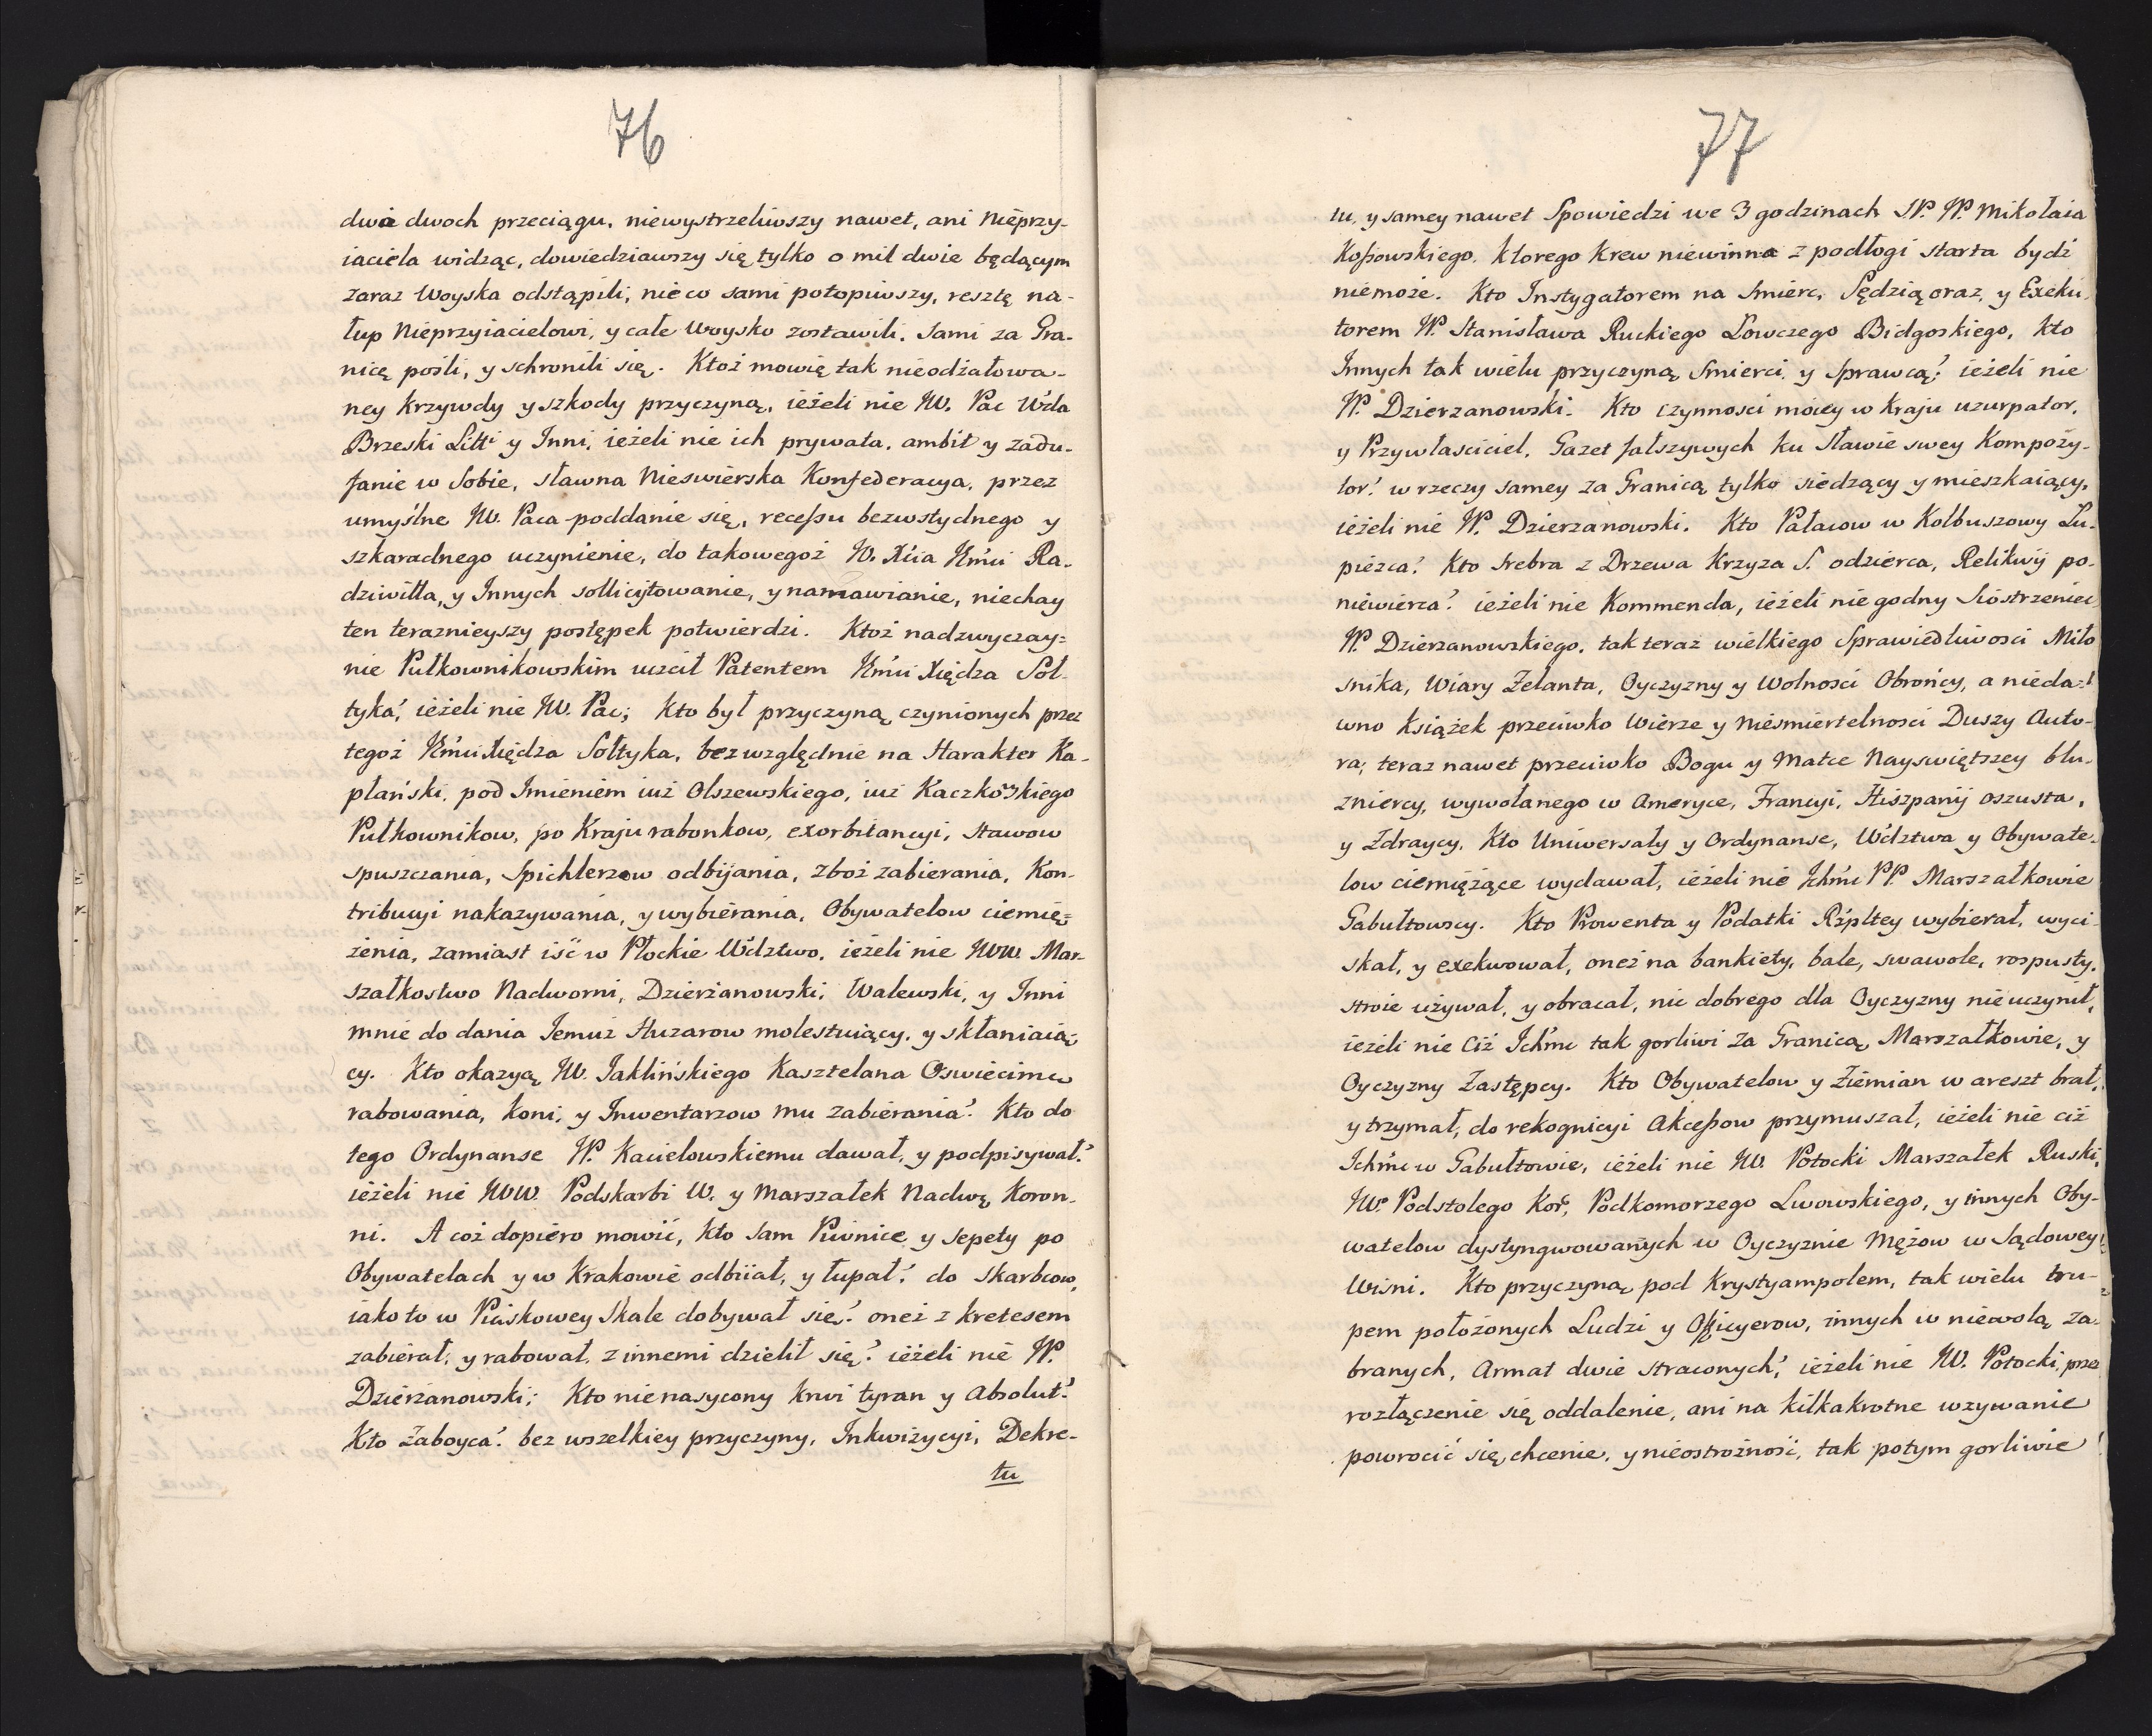 76
dwa dwoch przeciągu, niewystrzeliwszy nawet, ani Nieprzy-
iaciela widząc, dowiedziawszy się tylko o mil dwie będącym
zaraz Woyska odstąpili, nieco sami potopiwszy, resztę na-
łup Nieprzyiacielowi, y całe Woysko zostawili. Sami za Gra-
nicę pośli, y schronili się. Ktoż mowię tak nieodżałowa-
ney krzywdy y szkody przyczyną, ieżeli nie JW. Pac Wda
Brzeski Litti y Inni, ieżeli nie ich prywata, ambit y zadu-
fanie w Sobie, sławna Nieswierska Konfederacya, przez
umyślne JW. Paca poddanie się, recessu bezwstydnego y
szkaradnego uczynienie, do takowegoż W. Xcia Jmci Ra-
dziwiłła, y Innych sollicytowanie, y namawianie, niechay
ten teraznieyszy postępek potwierdzi. Ktoż nadzwyczay=
nie Pułkownikowskim uczcił Patentem Jmci Xiędza Soł-
tyka, ieżeli nie JW. Pac; Kto był przyczyną czynionych przez
tegoż Jmci Xiędza Sołtyka, bezwzględnie na Harakter Ka-
płański, pod Imieniem iuż Olszewskiego, iuż Kaczkowskiego
Pułkownikow, po Kraju rabonkow, exorbitancyi, stawow
spuszczania, Spichlerzow odbijania, Zboż zabierania, Kon-
tribucyi nakazywania, y wybierania, Obywatelow ciemię=
żenia, zamiast iść w Płockie Wdztwo, ieżeli nie JWW. Mar-
szałkostwo Nadworni, Dzierżanowski, Walewski, y Inni
mnie do dania Jemuż Huzarow molestuiący, y skłaniaią-
cy. Kto okazyą JW. Jaklińskiego Kasztelana Oswiecima
rabowania, koni, y Inwentarzow mu zabierania? Kto do
tego Ordynanse W. Kacielowskiemu dawał, y podpisywał?
ieżeli nie JWW. Podskarbi W. y Marszałek Nadwę Koron-
ni. A coż dopiero mowić, kto sam Piwnice y sepety po
Obywatelach y w Krakowie odbiiał, y łupał? do skarbcow,
iako to w Piaskowey Skale dobywał się? oneż z kretesem
zabierał, y rabował, z innemi dzielił się? ieżeli nie W.
Dzierżanowski; Kto nienasycony krwi tyran y Absolut?
Kto Zaboyca? bez wszelkiey przyczyny, Inkwizycyi, Dekre-
tu
77
tu, y samey nawet Spowiedzi we 3 godzinach SP. W. Mikołaia
Kossowskiego, ktorego Krew niewinna z podłogi starta bydź
niemoże. Kto Instygatorem na Smierc, Sędzią oraz, y Exeku-
torem W. Stanisława Ruckiego Łowczego Bidgoskiego, kto
Innych tak wielu przyczyną Smierci, y Sprawcą? ieżeli nie
W. Dzierzanowski. Kto czynnosci mocy w Kraju uzurpator,
y Przywłasciciel, Gazet fałszywych ku Sławie swey Kompozy-
tor? w rzeczy samey za Granicą tylko siedzący y mieszkaiący,
ieżeli nie W. Dzierzanowski. Kto Pałacow w Kolbuszowy Łu-
pieżca? Kto srebra z Drzewa Krzyża S. odzierca, Relikwij po-
niewierca? ieżeli nie Kommenda, ieżeli nie godny Siostrzeniec
W. Dzierzanowskiego, tak teraz wielkiego Sprawiedliwosci Miło
snika, Wiary Zelanta, Oyczyzny y Wolnosci Obrońcy, a nieda=
wno książek przeciwko Wierze y niesmiertelnosci Duszy Auto-
ra; teraz nawet przeciwko Bogu y Matce Nayswiętszey blu-
zniercy, wywołanego w Ameryce, Francyi, Hiszpanij oszusta,
y Zdraycy. Kto Uniwersały y Ordynanse, Wdztwa y Obywate-
low ciemiężące wydawał, ieżeli nie Jchmc PP. Marszałkowie
Gabułtowscy. Kto Prowenta y Podatki Rzpltey wybierał, wyci-
skał, y exekwował, oneż na bankiety, bale, swawole, rospusty,
stroie używał, y obracał, nic dobrego dla Oyczyzny nieuczynił,
ieżeli nie Ciż Jchmc tak gorliwi za Granicą Marszałkowie, y
Oyczyzny Zastępcy. Kto Obywatelow y Ziemian w areszt brał,
y trzymał, do rekognicyi Akcessow przymuszał, ieżeli nie ciż
Jchmc w Gabułtowie, ieżeli nie JW. Potocki Marszałek Ruski,
JWo Podstolego Kor, Podkomorzego Lwowskiego, y innych Oby-
watelow dystyngwowanych w Oyczyznie Mężow w Sądowey
Wisni. Kto przyczyną pod Krystyampolem, tak wielu tru-
pem położonych Ludzi y Officyerow, innych w niewolą za-
branych, Armat dwie straconych? ieżeli nie JW. Potocki, przez
rozłączenie się, oddalenie, ani na kilkakrotne wzywanie
powrocić się chcenie, y nieostrożność, tak potym gorliwie